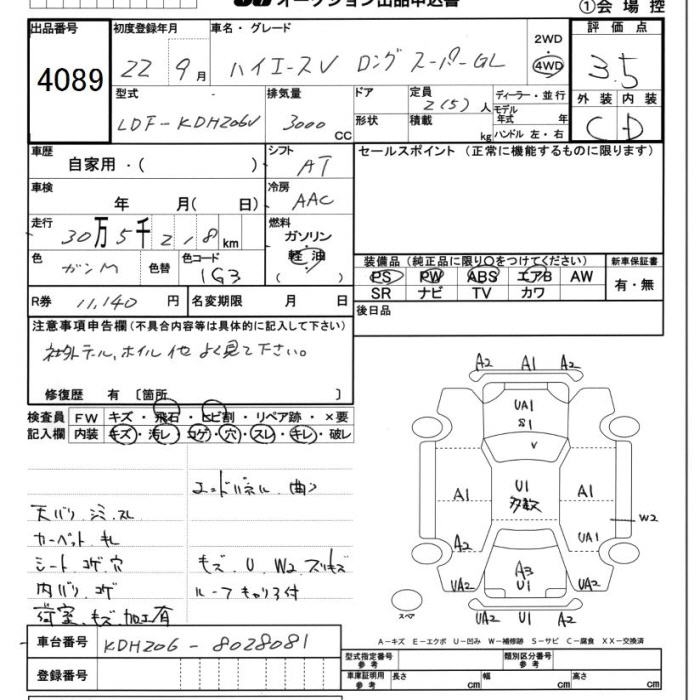 オークション出品申込書
①会場控
出品番号 初度登録年月 車名・グレード 評価点
4089 22 9月 ハイエースV ロング スーパーGL 2WD 4WD 3.5
型式 排気量 ドア 定員 ディーラー・並行 外装 内装
LDF-KDH206V 3000 CC 形状 2(5)人 積載 kg モデル年式 年 ハンドル 左・右 C D
車歴 シフト セールスポイント (正常に機能するものに限ります)
自家用・( ) AT
車検 冷房
年 月( 日) AAC
走行 燃料
30万5千218km ガソリン 軽油 ( )
色 色替 色コード 装備品(純正品に限り○をつけてください) 新車保証書
ガンM 1G3 PS PW ABS エアB AW 有・無
SR ナビ TV カワ
R券 11,140円 名変期限 月 日 後日品
注意事項申告欄(不具合内容等は具体的に記入して下さい)
社外テール、ホイル他よく見て下さい。
修復歴 有 〔箇所 〕
検査員 FW キズ・飛石・ヒビ割・リペア跡・×要
記入欄 内装 キズ・汚レ・コゲ・穴・スレ・キレ・破レ
A2 A1 A2
UA1
S1
V
エンドパネル 曲
天バリ シミ スレ
カーペット キレ
シート コゲ 穴 キズ U W2 スリキズ
内バリ コゲ ルーフキャリア付
荷室 キズ 加工有
A1 U1 多数 A1
W2
A2 UA1
UA2 A3 U1 UA2
UA2 U1 A2
スペア
A-キズ E-エクボ U-凹み W-補修跡 S-サビ C-腐食 XX-交換済
車台番号 KDH206-8028081
登録番号
型式指定番号 参考 類別区分番号 参考
車庫証明用 参考 長さ cm 幅 cm 高さ cm